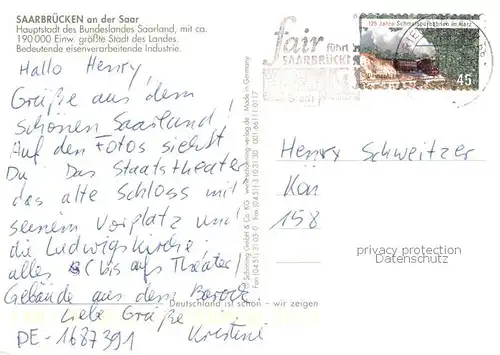 SAARBRÜCKEN an der Saar
Hauptstadt des Bundeslandes Saarland, mit ca.
190 000 Einw. größte Stadt des Landes.
Bedeutende eisenverarbeitende Industrie.
Hallo Henry!
Grüße aus dem
schönen Saarland!
Auf den Fotos siehst
Du Das Staatstheater
das alte Schloss mit
seinem Vorplatz und
die Ludwigskirche,
alles (bis aufs Theater)
Gebäude aus dem Barock
Liebe Grüße
Kristine
DE-1687391
Deutschland ist schön - wir zeigen
© Schöning GmbH & Co. KG · www.schoening-verlag.de · Made in Germany
Fax (0451) 3 10 31 30
fair führt
SAARBRÜCKEN
Stadt
125 Jahre Schmalspurbahnen im Harz
Deutschland
45
Henry Schweitzer
158
privacy protection
Datenschutz